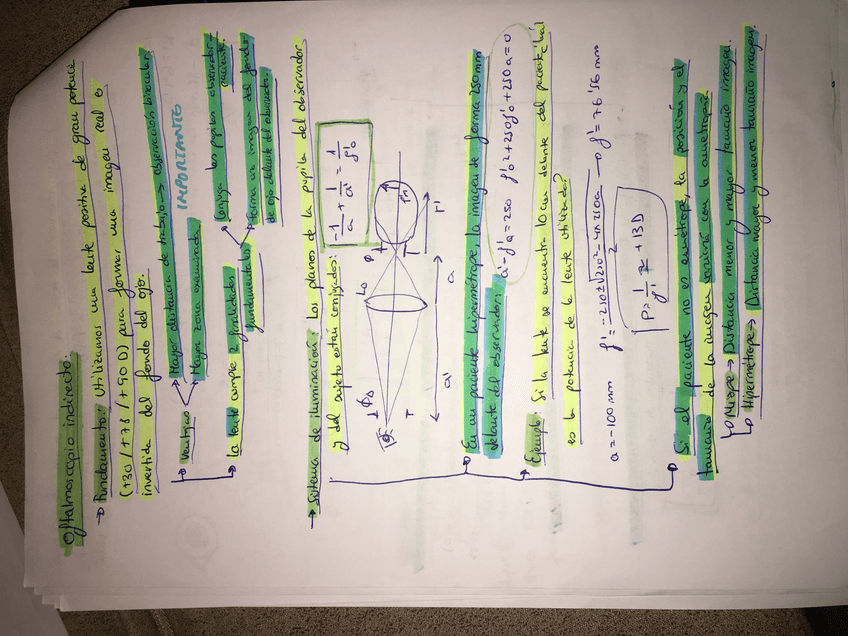 Oftalmoscopio indirecto:
→ Fundamento: Utilizamos una lente positiva de gran potencia
(+30 / +78 / +90 D) para formar una imagen real e
invertida del fondo del ojo.
↳ Ventajas → Mayor distancia de trabajo → observación binocular.
→ Mayor zona examinada. IMPORTANTE
↳ La lente cumple 2 finalidades fundamentales
→ Conjuga las pupilas observador-paciente.
→ Forma la imagen del fondo
de ojo delante del observador.
→ Sistema de iluminación: Los planos de la pupila del observador
y del sujeto están conjugados:
-1/a + 1/a' = 1/f'o
a' a
→ En un paciente hipermétrope la imagen se forma 250 mm
delante del observador: a' - f'a = 250 f'o² + 250f'o + 250a = 0
→ Ejemplo: Si la lente se encuentra 10 cm delante del paciente ¿cuál
es la potencia de la lente utilizada?
a = -100 mm f' = -250 ± √250² - 4·1·250a / 2 → f' = 76'56 mm
P = 1/f' ≈ +13 D
→ Si el paciente no es emétrope, la posición y el
tamaño de la imagen variará con la ametropía.
↳ Miope → Distancia menor y mayor tamaño imagen.
↳ Hipermétrope → Distancia mayor y menor tamaño imagen.